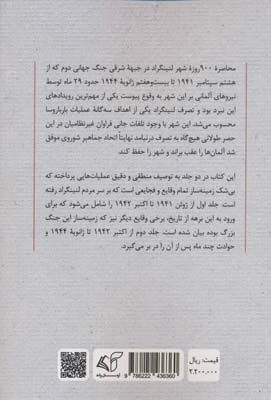 محاصرهٔ ۹۰۰ روزهٔ شهر لنینگراد در جبههٔ شرقی جنگ جهانی دوم که از
هشتم سپتامبر ۱۹۴۱ تا بیست‌وهفتم ژانویهٔ ۱۹۴۴ حدود ۲۹ ماه توسط
نیروهای آلمانی بر این شهر به وقوع پیوست یکی از مهم‌ترین رویدادهای
این نبرد بود و تصرف لنینگراد یکی از اهداف سه‌گانهٔ عملیات بارباروسا
محسوب می‌شد. این شهر با وجود تلفات جانی فراوان غیرنظامیان در این
حصر طولانی هیچ‌گاه به تصرف درنیامد نهایتاً اتحاد جماهیر شوروی موفق
شد آلمان‌ها را عقب براند و شهر را حفظ کند.
این کتاب در دو جلد به توصیف منطقی و دقیق عملیات‌هایی پرداخته که
بی‌شک زمینه‌ساز تمام وقایع و فجایعی است که بر سر مردم لنینگراد رفته
است. جلد اول از ژوئن ۱۹۴۱ تا اکتبر ۱۹۴۲ را شامل می‌شود که برای
ورود به این برهه از تاریخ، برخی وقایع دیگر نیز که زمینه‌ساز این جنگ
بزرگ بوده بیان شده است. جلد دوم از اکتبر ۱۹۴۲ تا ژانویهٔ ۱۹۴۴ و
حوادث چند ماه پس از آن را در بر می‌گیرد.
قیمت: ریال
۲.۲۰۰.۰۰۰
9 786222 436360